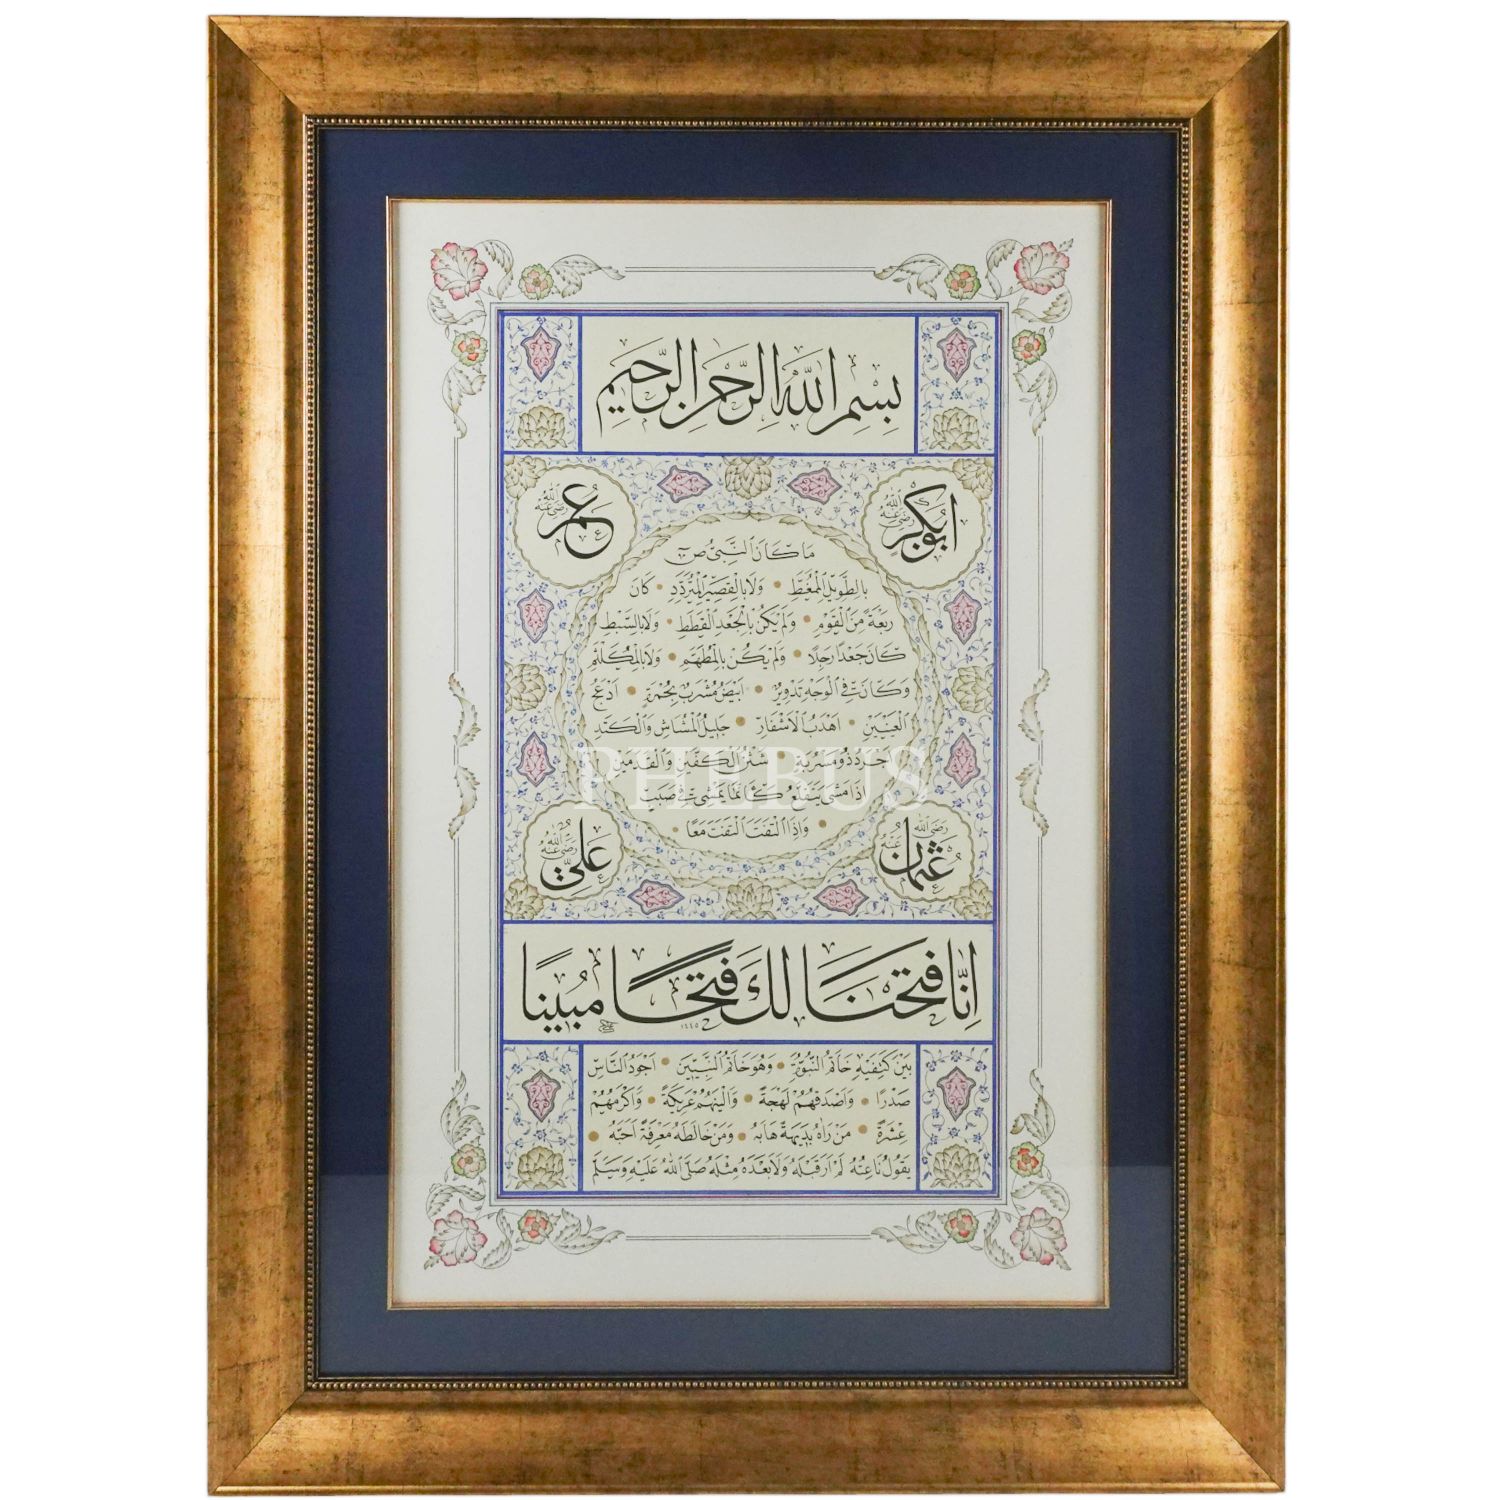 بِسْمِ اللهِ الرَّحْمٰنِ الرَّحِيمِ
ابُو بَكْر رَضِيَ اللهُ عَنْهُ
عُمَر رَضِيَ اللهُ عَنْهُ
مَا كَانَ النَّبِيُّ ص
بِالطَّوِيلِ الْمُمَّغَطِ وَلَا بِالْقَصِيرِ الْمُتَرَدِّدِ كَانَ
رَبْعَةً مِنَ الْقَوْمِ وَلَمْ يَكُنْ بِالْجَعْدِ الْقَطَطِ وَلَا بِالسَّبْطِ
كَانَ جَعْدًا رَجِلًا وَلَمْ يَكُنْ بِالْمُطَهَّمِ وَلَا بِالْمُكَلْثَمِ
وَكَانَ فِي الْوَجْهِ تَدْوِيرٌ اَبْيَضُ مُشْرَبٌ بِحُمْرَةٍ اَدْعَجُ
الْعَيْنَيْنِ اَهْدَبُ الْاَشْفَارِ جَلِيلُ الْمُشَاشِ وَالْكَتَدِ
PHEBUS
ذُو مَسْرُبَةٍ شَثْنُ الْكَفَّيْنِ وَالْقَدَمَيْنِ
اِذَا مَشٰى يَتَقَلَّعُ كَاَنَّمَا يَمْشِي فِي صَبَبٍ
وَاِذَا الْتَفَتَ الْتَفَتَ مَعًا
عُثْمَان رَضِيَ اللهُ عَنْهُ
عَلِيّ رَضِيَ اللهُ عَنْهُ
اِنَّا فَتَحْنَا لَكَ فَتْحًا مُبِينًا
١٤٤٥
بَيْنَ كَتِفَيْهِ خَاتَمُ النُّبُوَّةِ وَهُوَ خَاتَمُ النَّبِيِّينَ اَجْوَدُ النَّاسِ
صَدْرًا وَاَصْدَقُهُمْ لَهْجَةً وَاَلْيَنُهُمْ عَرِيكَةً وَاَكْرَمُهُمْ
عِشْرَةً مَنْ رَاٰهُ بَدِيهَةً هَابَهُ وَمَنْ خَالَطَهُ مَعْرِفَةً اَحَبَّهُ
يَقُولُ نَاعِتُهُ لَمْ اَرَ قَبْلَهُ وَلَا بَعْدَهُ مِثْلَهُ صَلَّى اللهُ عَلَيْهِ وَسَلَّمَ